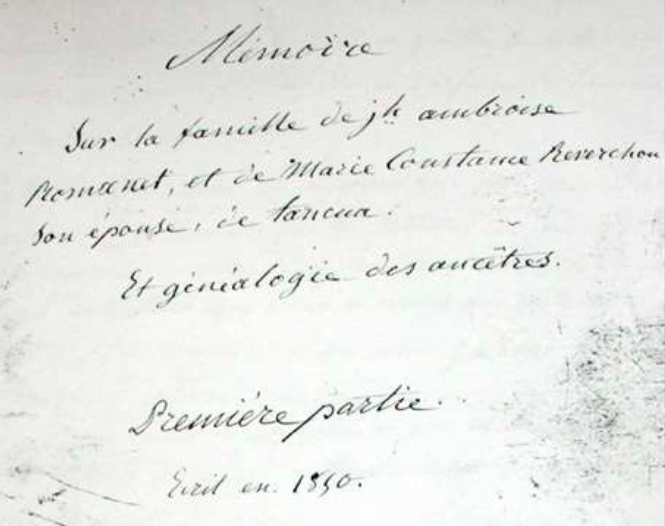 Mémoire
Sur la famille de jh ambroise
Romanet, et de Marie Constance Reverchon
Son épouse, de tancua.
Et généalogie des ancêtres.
Première partie.
Ecrit en 1890.